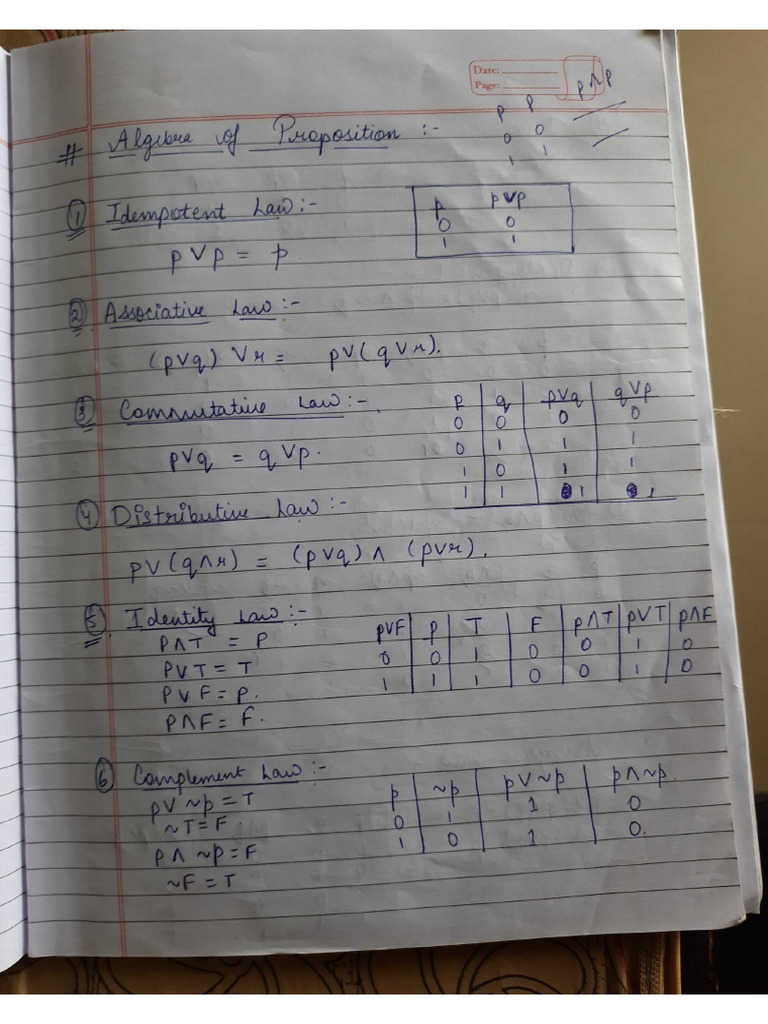 Date:
Page:
p p p∧p
0 0
1 1
# Algebra of Proposition :-
① Idempotent Law :-
p p∨p
0 0
1 1
p∨p = p
② Associative Law :-
(p∨q) ∨r = p∨(q∨r).
③ Commutative Law :-
p∨q = q∨p.
p q p∨q q∨p
0 0 0 0
0 1 1 1
1 0 1 1
1 1 1 1
④ Distributive Law :-
p∨(q∧r) = (p∨q) ∧ (p∨r).
⑤ Identity Law :-
P∧T = P
P∨T = T
P∨F = p.
P∧F = F.
p∨F p T F p∧T p∨T p∧F
0 0 1 0 0 1 0
1 1 1 0 0 1 0
⑥ Complement Law :-
p∨ ~p = T
~T = F.
P∧ ~p = F
~F = T
p ~p p∨~p p∧~p
0 1 1 0
1 0 1 0.